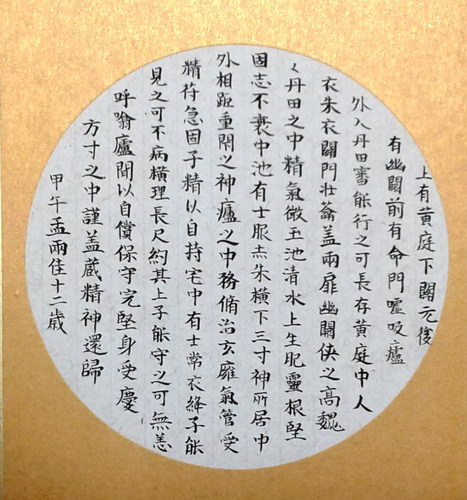 上有黃庭下關元後
有幽關前有命門噓吸廬
外入丹田審能行之可長存黃庭中人
衣朱衣關門壯籥蓋兩扉幽關俠之高巍
〻丹田之中精氣微玉池清水上生肥靈根堅
固志不衰中池有士服赤朱橫下三寸神所居中
外相距重閉之神廬之中務脩治玄廱氣管受
精符急固子精以自持宅中有士常衣絳子能
見之可不病橫理長尺約其上子能守之可無恙
呼噏廬間以自償保守完堅身受慶
方寸之中謹蓋藏精神還歸
甲午孟雨佳十二歲